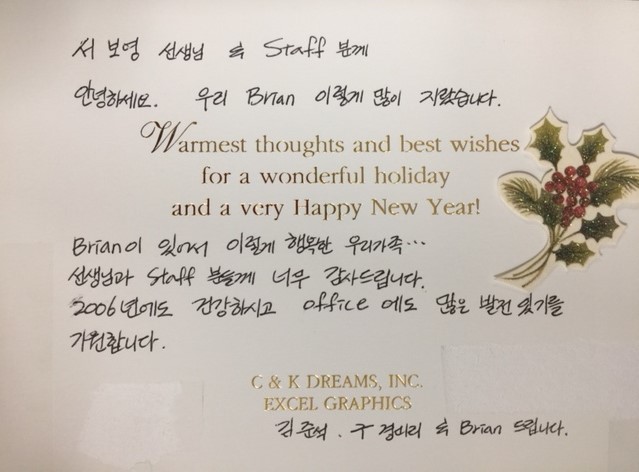 서 보영 선생님 & Staff 분께
안녕하세요. 우리 Brian 이렇게 많이 자랐습니다.
Warmest thoughts and best wishes
for a wonderful holiday
and a very Happy New Year!
Brian이 있어서 이렇게 행복한 우리가족...
선생님과 Staff 분들께 너무 감사드립니다.
2006년에도 건강하시고 office 에도 많은 발전 있기를
기원합니다.
C & K DREAMS, INC.
EXCEL GRAPHICS
김 준석. & Brian 드립니다.